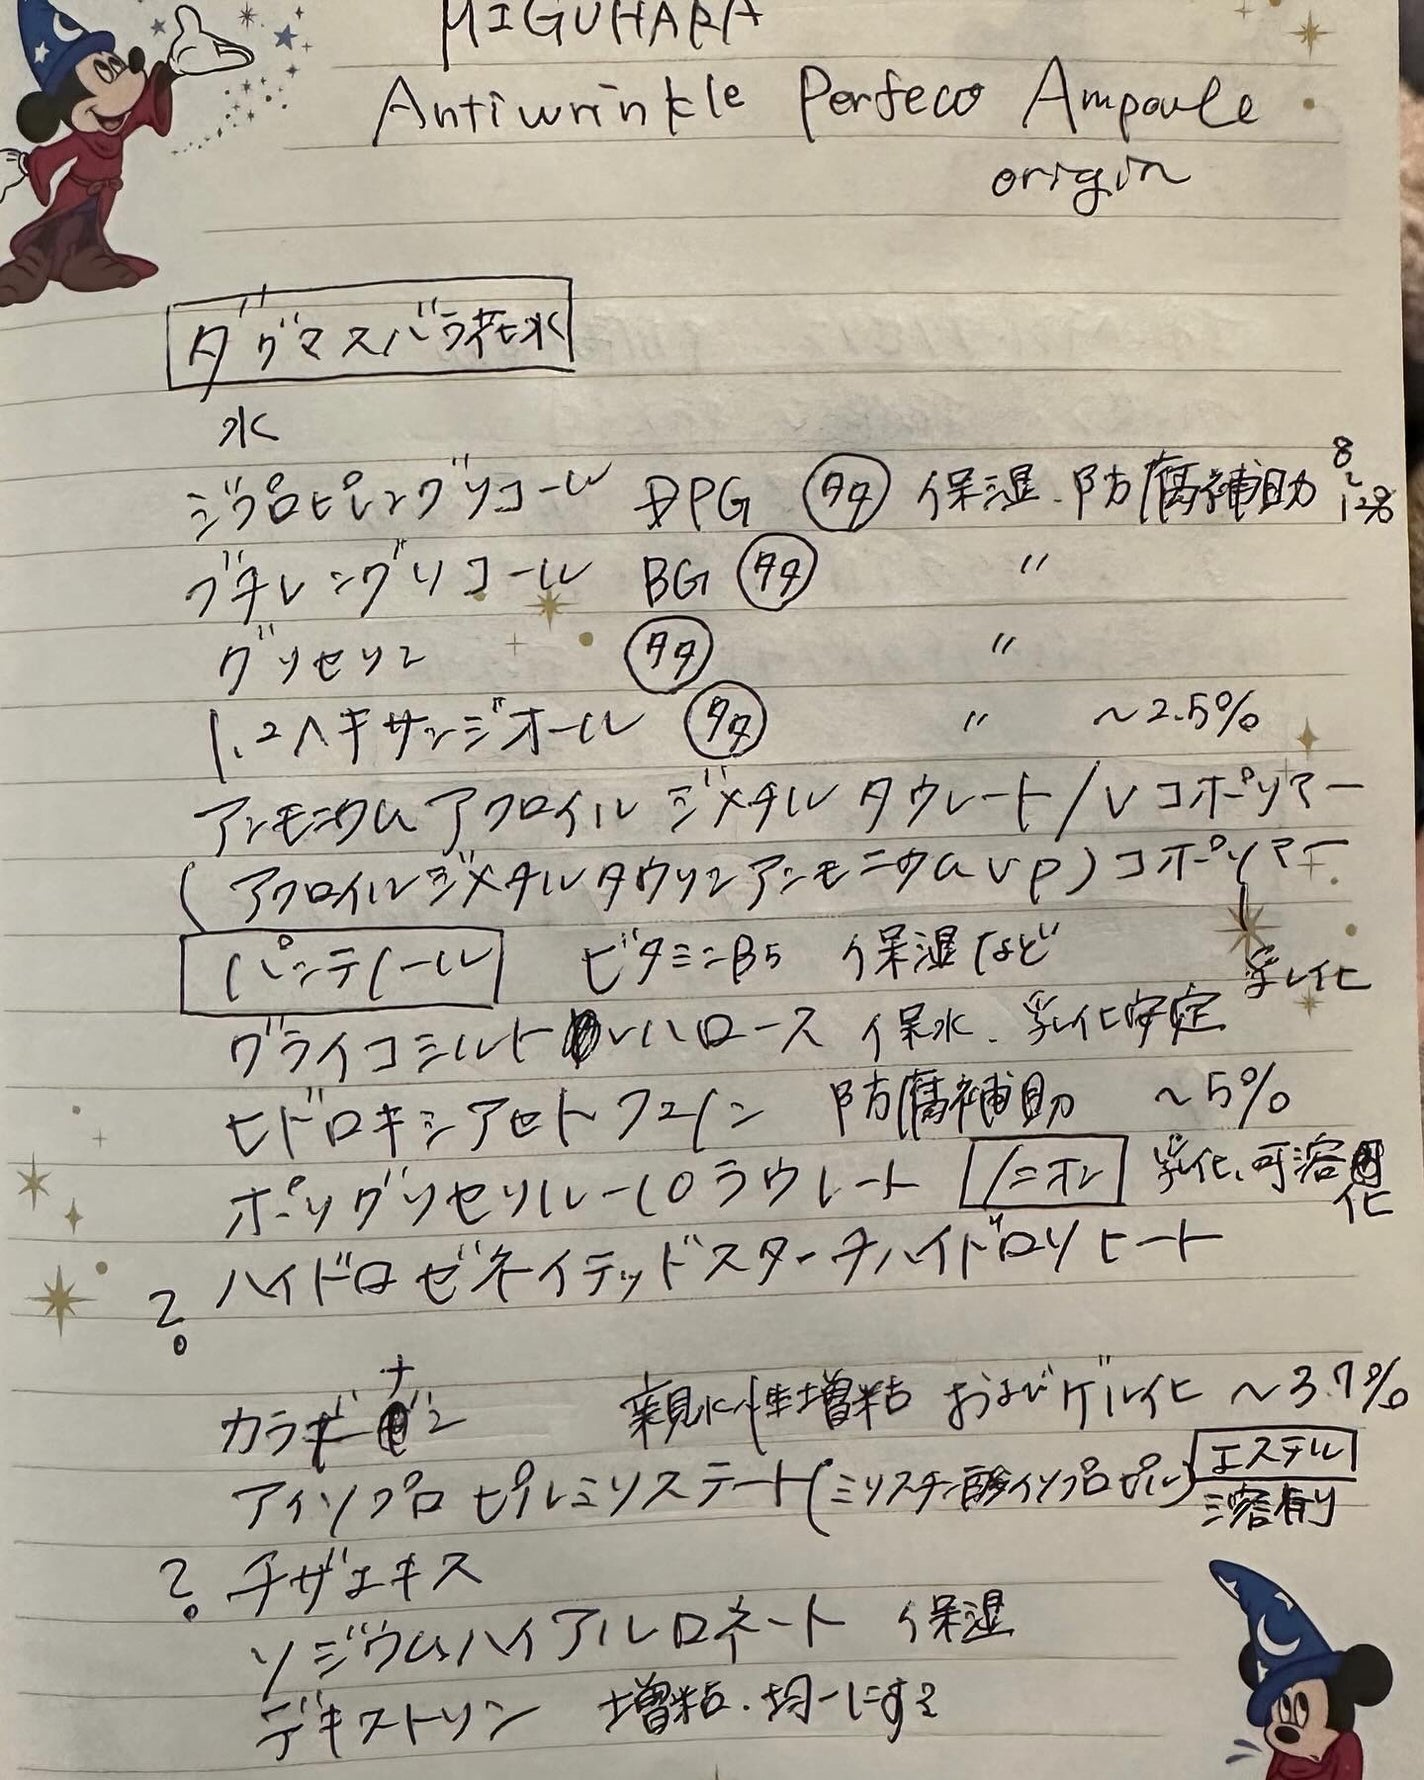 MIGUHARA
Antiwrinkle Perfeco Ampoule
origin
ダグマスバラ花水
水
ジプロピレングリコール DPG 多 保湿.防腐補助 8~12%
ブチレングリコール BG 多 〃
グリセリン 多 〃
1.2ヘキサンジオール 多 〃 ~2.5%
アンモニウムアクロイルジメチルタウレート/Vコポリマー
(アクロイルジメチルタウリンアンモニウムVP)コポリマー
乳化
パンテノール ビタミンB5 保湿など
グライコシルトレハロース 保水.乳化安定
ヒドロキシアセトフェノン 防腐補助 ~5%
ポリグリセリル-10ラウレート ノニオン 乳化、可溶化
? ハイドロゼネイテッドスターチハイドロリセート
カラギーナン 親水性増粘およびゲル化 ~3.7%
アイソプロピルミリステート(ミリスチン酸イソプロピル) エステル
溶剤
? チザエキス
ソジウムハイアルロネート 保湿
デキストリン 増粘.均一にする